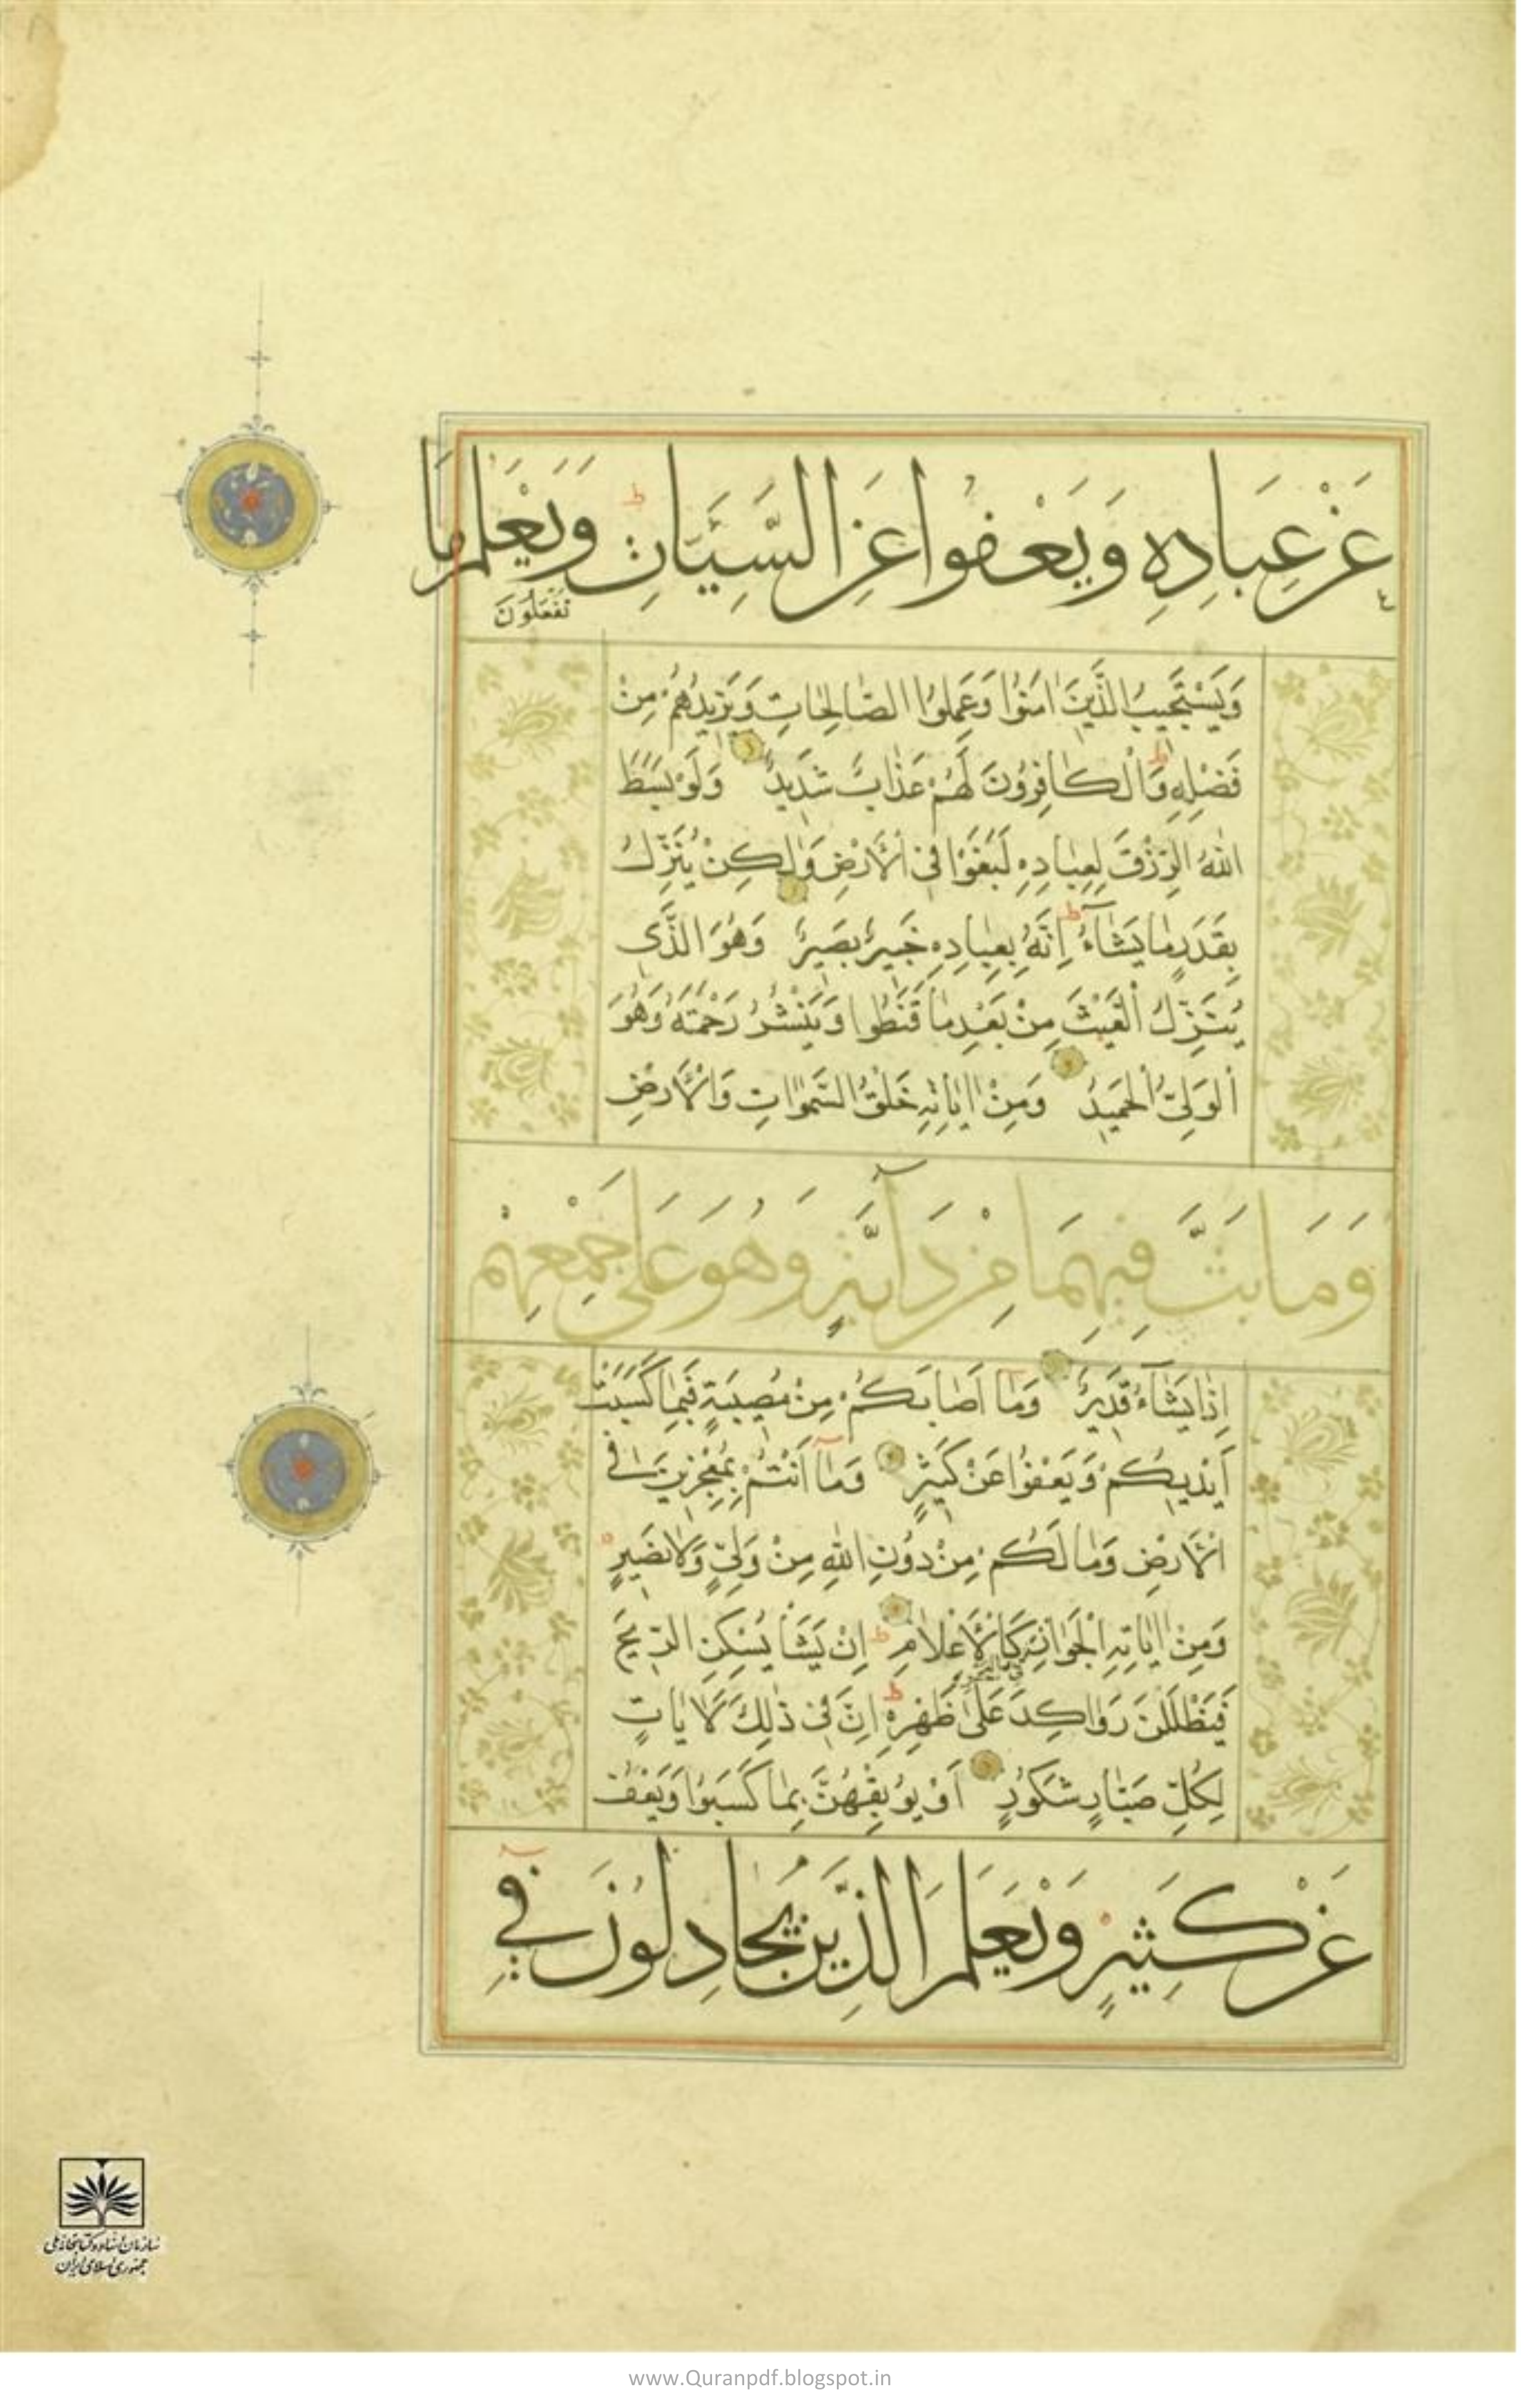 عَنْ عِبَادِهِ وَيَعْفُوا عَنِ السَّيِّئَاتِ ط وَيَعْلَمُ مَا
تَفْعَلُونَ
وَيَسْتَجِيبُ الَّذِينَ اٰمَنُوا وَعَمِلُوا الصَّالِحَاتِ وَيَزِيدُهُمْ مِنْ
فَضْلِهِ ط وَالْكَافِرُونَ لَهُمْ عَذَابٌ شَدِيدٌ وَلَوْ بَسَطَ
اللّٰهُ الرِّزْقَ لِعِبَادِهِ لَبَغَوْا فِي الْأَرْضِ وَلٰكِنْ يُنَزِّلُ
بِقَدَرٍ مَا يَشَآءُ ط إِنَّهُ بِعِبَادِهِ خَبِيرٌ بَصِيرٌ وَهُوَ الَّذِي
يُنَزِّلُ الْغَيْثَ مِنْ بَعْدِ مَا قَنَطُوا وَيَنْشُرُ رَحْمَتَهُ وَهُوَ
الْوَلِيُّ الْحَمِيدُ وَمِنْ اٰيَاتِهِ خَلْقُ السَّمٰوَاتِ وَالْأَرْضِ
وَمَا بَثَّ فِيهِمَا مِنْ دَآبَّةٍ وَهُوَ عَلَى جَمْعِهِمْ
إِذَا يَشَآءُ قَدِيرٌ وَمَا أَصَابَكُمْ مِنْ مُصِيبَةٍ فَبِمَا كَسَبَتْ
أَيْدِيكُمْ وَيَعْفُوا عَنْ كَثِيرٍ وَمَا أَنْتُمْ بِمُعْجِزِينَ فِي
الْأَرْضِ وَمَا لَكُمْ مِنْ دُونِ اللّٰهِ مِنْ وَلِيٍّ وَلَا نَصِيرٍ
وَمِنْ اٰيَاتِهِ الْجَوَارِ فِي الْبَحْرِ كَالْأَعْلَامِ ط إِنْ يَشَأْ يُسْكِنِ الرِّيحَ
فَيَظْلَلْنَ رَوَاكِدَ عَلَى ظَهْرِهِ ط إِنَّ فِي ذٰلِكَ لَاٰيَاتٍ
لِكُلِّ صَبَّارٍ شَكُورٍ أَوْ يُوبِقْهُنَّ بِمَا كَسَبُوا وَيَعْفُ
عَنْ كَثِيرٍ وَيَعْلَمَ الَّذِينَ يُجَادِلُونَ فِي
سازمان اسناد و کتابخانه ملی
جمهوری اسلامی ایران
www.Quranpdf.blogspot.in